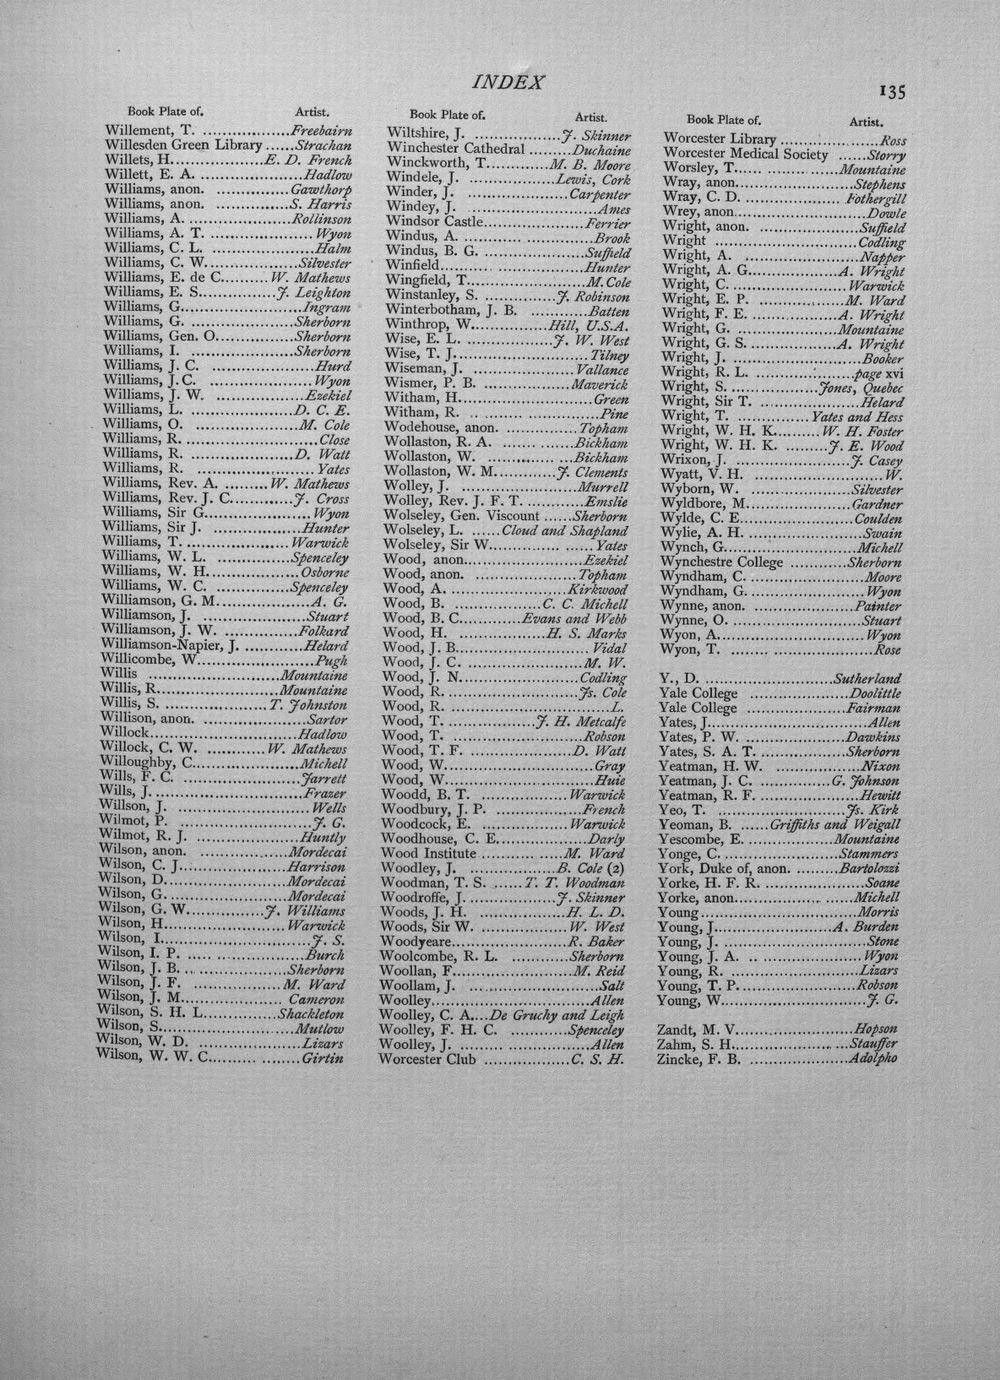 INDEX
135
Book Plate of. Artist.
Willement, T. ..................Freebairn
Willesden Green Library ......Strachan
Willets, H...................E. D. French
Willett, E. A. .......................Hadlow
Williams, anon. ...............Gawthorp
Williams, anon. ...............S. Harris
Williams, A. ......................Rollinson
Williams, A. T. .......................Wyon
Williams, C. L. .......................Halm
Williams, C. W....................Silvester
Williams, E. de C..........W. Mathews
Williams, E. S................J. Leighton
Williams, G..........................Ingram
Williams, G. ......................Sherborn
Williams, Gen. O................Sherborn
Williams, I. ......................Sherborn
Williams, J. C. .......................Hurd
Williams, J. C. .......................Wyon
Williams, J. W. ..................Ezekiel
Williams, L. ......................D. C. E.
Williams, O. ......................M. Cole
Williams, R. ..........................Close
Williams, R. ......................D. Watt
Williams, R. ..........................Yates
Williams, Rev. A. .........W. Mathews
Williams, Rev. J. C.............J. Cross
Williams, Sir G.......................Wyon
Williams, Sir J. ....................Hunter
Williams, T. ......................Warwick
Williams, W. L. .................Spenceley
Williams, W. H...................Osborne
Williams, W. C. .................Spenceley
Williamson, G. M...................A. G.
Williamson, J. ......................Stuart
Williamson, J. W. ...............Folkard
Williamson-Napier, J. ............Helard
Willicombe, W........................Pugh
Willis ............................Mountaine
Willis, R.........................Mountaine
Willis, S. .....................T. Johnston
Willison, anon. ......................Sartor
Willock..............................Hadlow
Willock, C. W. ............W. Mathews
Willoughby, C......................Michell
Wills, F. C. .........................Jarrett
Wills, J................................Frazer
Willson, J. ............................Wells
Wilmot, P. ...........................J. G.
Wilmot, R. J. ......................Huntly
Wilson, anon. ..................Mordecai
Wilson, C. J.....................Harrison
Wilson, D.........................Mordecai
Wilson, G.........................Mordecai
Wilson, G. W................J. Williams
Wilson, H.........................Warwick
Wilson, I...............................J. S.
Wilson, I. P. ........................Burch
Wilson, J. B......................Sherborn
Wilson, J. F. .....................M. Ward
Wilson, J. M.....................Cameron
Wilson, S. H. L...............Shackleton
Wilson, S...........................Mutlow
Wilson, W. D. .....................Lizars
Wilson, W. W. C..................Girtin
Book Plate of. Artist.
Wiltshire, J. ..................J. Skinner
Winchester Cathedral .........Duchaine
Winckworth, T.............M. B. Moore
Windele, J. ..................Lewis, Cork
Winder, J. .......................Carpenter
Windey, J. ..........................Ames
Windsor Castle.....................Ferrier
Windus, A. ..........................Brook
Windus, B. G. ....................Suffield
Winfield.............................Hunter
Wingfield, T........................M. Cole
Winstanley, S. ...............J. Robinson
Winterbotham, J. B. ............Batten
Winthrop, W...............Hill, U.S.A.
Wise, E. L. ..................J. W. West
Wise, T. J............................Tilney
Wiseman, J. ......................Vallance
Wismer, P. B. ..................Maverick
Witham, H..........................Green
Witham, R. ...........................Pine
Wodehouse, anon. ...............Topham
Wollaston, R. A. ...............Bickham
Wollaston, W. ..................Bickham
Wollaston, W. M.............J. Clements
Wolley, J. ........................Murrell
Wolley, Rev. J. F. T. ............Emslie
Wolseley, Gen. Viscount ......Sherborn
Wolseley, L. ......Cloud and Shapland
Wolseley, Sir W.....................Yates
Wood, anon........................Ezekiel
Wood, anon. .....................Topham
Wood, A. ........................Kirkwood
Wood, B. ..................C. C. Michell
Wood, B. C.............Evans and Webb
Wood, H. .....................H. S. Marks
Wood, J. B...........................Vidal
Wood, J. C. ........................M. W.
Wood, J. N........................Codling
Wood, R. .........................Js. Cole
Wood, R. .............................L.
Wood, T. ..................J. H. Metcalfe
Wood, T. ..........................Robson
Wood, T. F. .....................D. Watt
Wood, W.............................Gray
Wood, W.............................Huie
Woodd, B. T. ....................Warwick
Woodbury, J. P. ..................French
Woodcock, E. ..................Warwick
Woodhouse, C. E..................Darly
Wood Institute ..................M. Ward
Woodley, J. ..................B. Cole (2)
Woodman, T. S. .......T. T. Woodman
Woodroffe, J. ..................J. Skinner
Woods, J. H. ..................H. L. D.
Woods, Sir W. ..................W. West
Woodyeare........................R. Baker
Woolcombe, R. L. ............Sherborn
Woollan, F........................M. Reid
Woollam, J. ..........................Salt
Woolley..............................Allen
Woolley, C. A....De Gruchy and Leigh
Woolley, F. H. C. ............Spenceley
Woolley, J. ..........................Allen
Worcester Club ..................C. S. H.
Book Plate of. Artist.
Worcester Library .....................Ross
Worcester Medical Society ......Storry
Worsley, T......................Mountaine
Wray, anon........................Stephens
Wray, C. D. .....................Fothergill
Wrey, anon..........................Dowle
Wright, anon. ....................Suffield
Wright ............................Codling
Wright, A. .........................Napper
Wright, A. G...................A. Wright
Wright, C. .......................Warwick
Wright, E. P. ..................M. Ward
Wright, F. E. ..................A. Wright
Wright, G. .....................Mountaine
Wright, G. S. ..................A. Wright
Wright, J. ..........................Booker
Wright, R. L. ....................page xvi
Wright, S. .................Jones, Quebec
Wright, Sir T. .....................Helard
Wright, T. ...............Yates and Hess
Wright, W. H. K..........W. H. Foster
Wright, W. H. K. .........J. E. Wood
Wrixon, J. ........................J. Casey
Wyatt, V. H. ...........................W.
Wyborn, W. .....................Silvester
Wyldbore, M.....................Gardner
Wylde, C. E.......................Coulden
Wylie, A. H. .......................Swain
Wynch, G...........................Michell
Wynchestre College ............Sherborn
Wyndham, C. .......................Moore
Wyndham, G. .......................Wyon
Wynne, anon. .....................Painter
Wynne, O. .........................Stuart
Wyon, A..............................Wyon
Wyon, T. ............................Rose
Y., D. ...........................Sutherland
Yale College .....................Doolittle
Yale College .....................Fairman
Yates, J................................Allen
Yates, P. W. ......................Dawkins
Yates, S. A. T. ..................Sherborn
Yeatman, H. W. ..................Nixon
Yeatman, J. C. ...............G. Johnson
Yeatman, R. F. ..................Hewitt
Yeo, T. ..........................Js. Kirk
Yeoman, B. ......Griffiths and Weigall
Yescombe, E. ..................Mountaine
Yonge, C. .......................Stammers
York, Duke of, anon. .........Bartolozzi
Yorke, H. F. R. ....................Soane
Yorke, anon.......................Michell
Young...............................Morris
Young, J........................A. Burden
Young, J. ............................Stone
Young, J. A. .......................Wyon
Young, R. ..........................Lizars
Young, T. P.......................Robson
Young, W............................J. G.
Zandt, M. V........................Hopson
Zahm, S. H.......................Stauffer
Zincke, F. B. .....................Adolpho